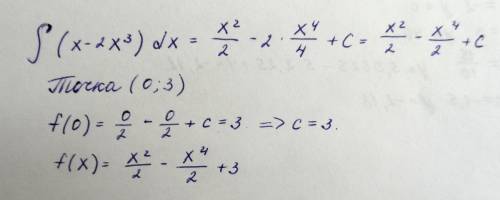 ∫ (x-2x³) dx = x²/2 - 2 · x⁴/4 + C = x²/2 - x⁴/2 + C
Точка (0;3)
f(0) = 0/2 - 0/2 + c = 3 => c = 3.
f(x) = x²/2 - x⁴/2 + 3